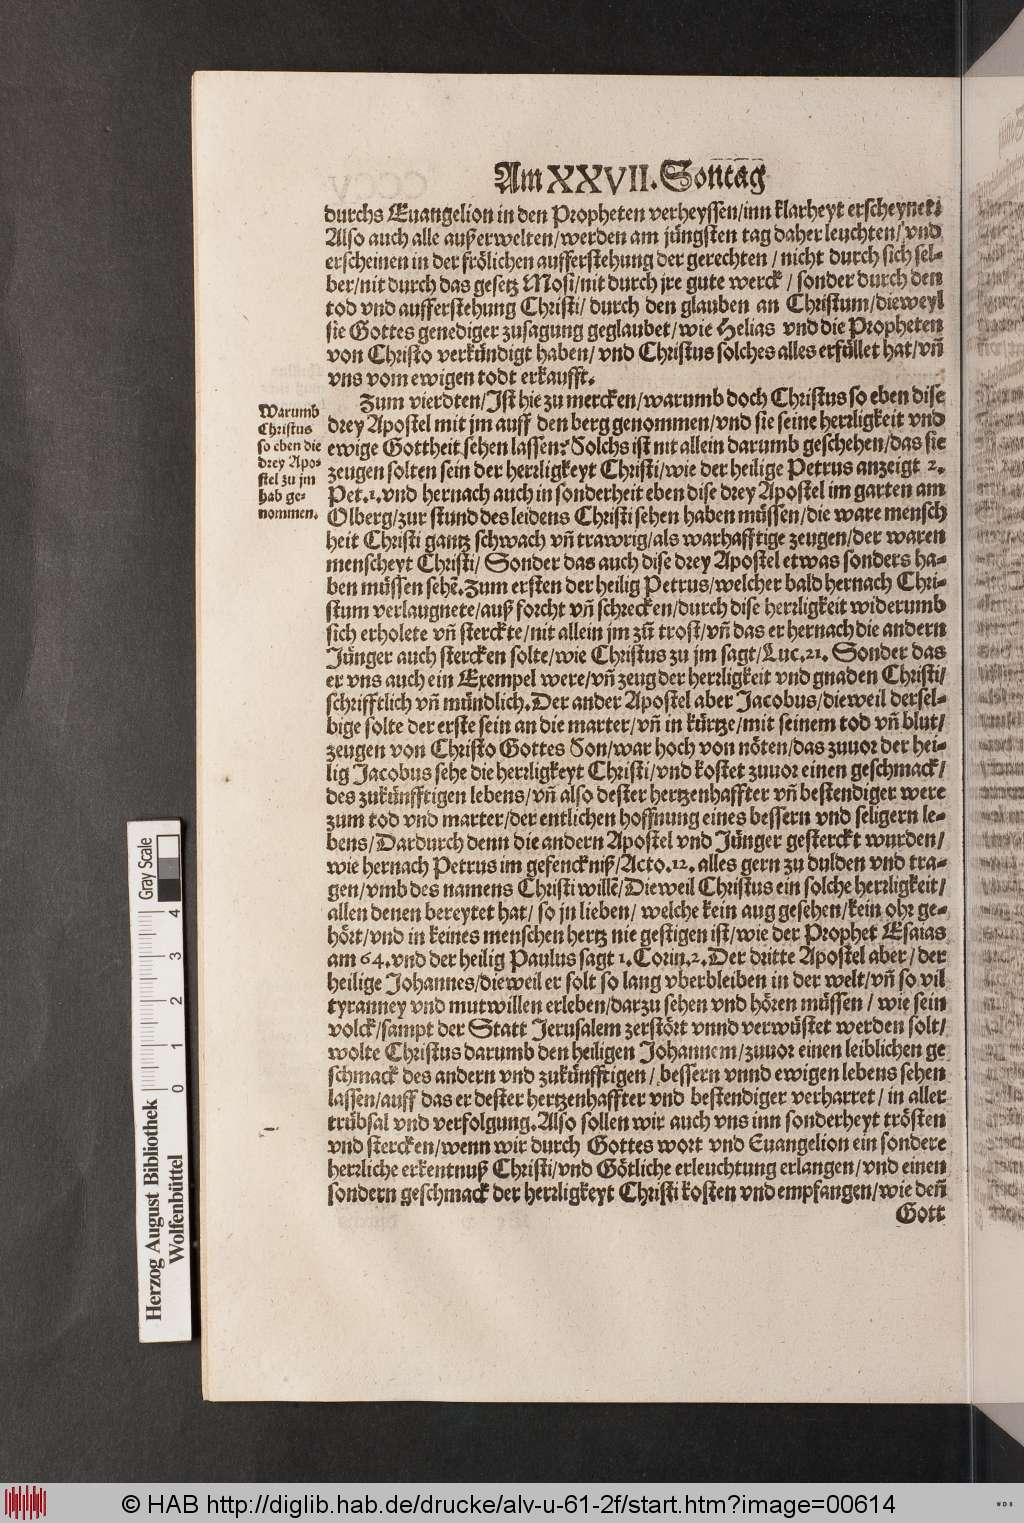 Am XXVII. Sontag
durchs Euangelion in den Propheten verheyssen/inn klarheyt erscheynet:
Also auch alle außerwelten/werden am jüngsten tag daher leuchten/vnd
erscheinen in der frölichen aufferstehung der gerechten / nicht durch sich sel-
ber/nit durch das gesetz Mosi/nit durch jre gute werck / sonder durch den
tod vnd aufferstehung Christi/ durch den glauben an Christum/dieweyl
sie Gottes genediger zusagung geglaubet/wie Helias vnd die Propheten
von Christo verkündigt haben/ vnd Christus solches alles erfüllet hat/vñ
vns vom ewigen todt erkaufft.
Zum vierdten/Ist hie zu mercken/warumb doch Christus so eben dise
drey Apostel mit jm auff den berg genommen/vnd sie seine herrligkeit vnd
ewige Gottheit sehen lassen? Solchs ist nit allein darumb geschehen/das sie
zeugen solten sein der herrligkeyt Christi/wie der heilige Petrus anzeigt 2.
Pet.1.vnd hernach auch in sonderheit eben dise drey Apostel im garten am
Olberg/zur stund des leidens Christi sehen haben müssen/die ware mensch
heit Christi gantz schwach vñ trawrig/als warhafftige zeugen/der waren
menscheyt Christi/ Sonder das auch dise drey Apostel etwas sonders ha-
ben müssen sehẽ. Zum ersten der heilig Petrus/welcher bald hernach Chri-
stum verlaugnete/auß forcht vñ schrecken/durch dise herrligkeit widerumb
sich erholete vñ sterckte/nit allein jm zů trost/vñ das er hernach die andern
Jünger auch stercken solte/wie Christus zu jm sagt/Luc.21. Sonder das
er vns auch ein Exempel were/vñ zeug der herrligkeit vnd gnaden Christi/
schrifftlich vñ mündlich. Der ander Apostel aber Jacobus/dieweil dersel-
bige solte der erste sein an die marter/vñ in kürtze/mit seinem tod vñ blut/
zeugen von Christo Gottes Son/war hoch von nöten/das zuuor der hei-
lig Jacobus sehe die herrligkeyt Christi/vnd kostet zuuor einen geschmack/
des zukünfftigen lebens/vñ also dester hertzenhaffter vñ bestendiger were
zum tod vnd marter/der entlichen hoffnung eines bessern vnd seligern le-
bens/Dardurch denn die andern Apostel vnd Jünger gesterckt wurden/
wie hernach Petrus im gefenckniß/Acto.12. alles gern zu dulden vnd tra-
gen/vmb des namens Christi willẽ/Dieweil Christus ein solche herrligkeit/
allen denen bereytet hat/ so jn lieben/ welche kein aug gesehen/kein ohr ge-
hört/vnd in keines menschen hertz nie gestigen ist/wie der Prophet Esaias
am 64.vnd der heilig Paulus sagt 1. Corin.2. Der dritte Apostel aber / der
heilige Johannes/dieweil er solt so lang vberbleiben in der welt/vñ so vil
tyranney vnd mutwillen erleben/darzu sehen vnd hören müssen / wie sein
volck/sampt der Statt Jerusalem zerstört vnnd verwüstet werden solt/
wolte Christus darumb den heiligen Johannem/zuuor einen leiblichen ge
schmack des andern vnd zukünfftigen/ bessern vnnd ewigen lebens sehen
lassen/auff das er dester hertzenhaffter vnd bestendiger verharret/ in aller
trübsal vnd verfolgung. Also sollen wir auch vns inn sonderheyt trösten
vnd stercken/wenn wir durch Gottes wort vnd Euangelion ein sondere
herzliche erkentnuß Christi/vnd Götliche erleuchtung erlangen/vnd einen
sondern geschmack der herrligkeyt Christi kosten vnd empfangen/wie deñ
Gott
Warumb
Christus
so eben die
drey Apo-
stel zu jm
hab ge-
nommen.
Herzog August Bibliothek
Wolfenbüttel
0 1 2 3 4
Gray Scale
© HAB http://diglib.hab.de/drucke/alv-u-61-2f/start.htm?image=00614